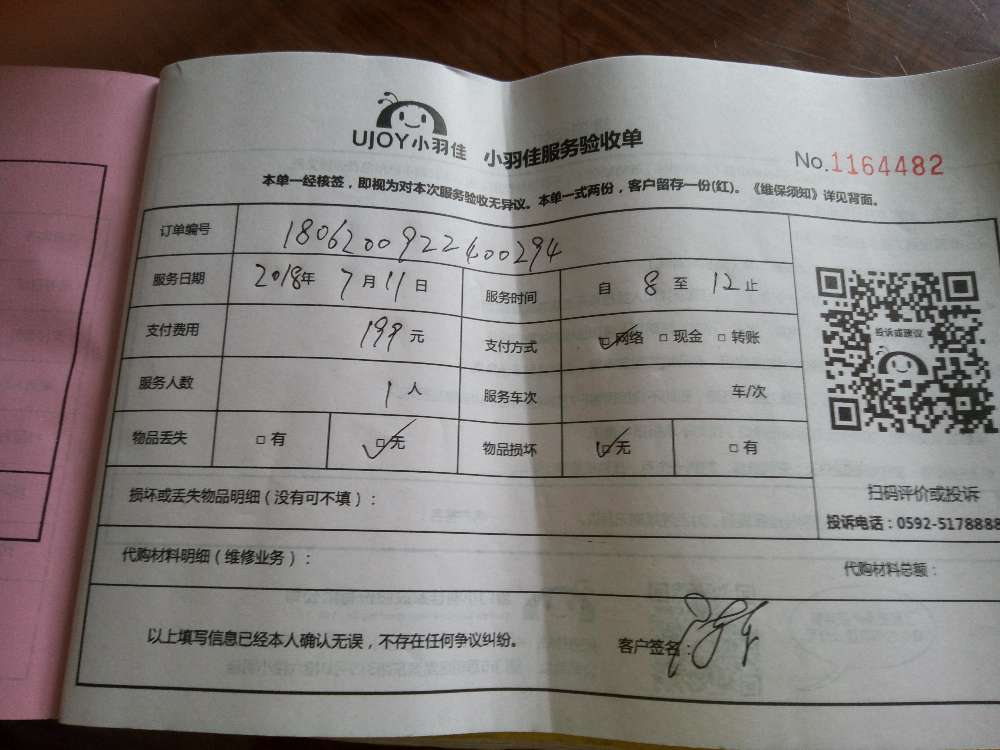 UJOY小羽佳 小羽佳服务验收单
No.1164482
本单一经核签，即视为对本次服务验收无异议。本单一式两份，客户留存一份(红)。《维保须知》详见背面。
订单编号 1806200922400294
服务日期 2018年 7月11日 服务时间 自 8 至 12 止
支付费用 199元 支付方式 ☑网络 □现金 □转账
投诉或建议
服务人数 1人 服务车次 车/次
物品丢失 □有 ☑无 物品损坏 ☑无 □有
扫码评价或投诉
损坏或丢失物品明细（没有可不填）：
投诉电话：0592-5178888
代购材料明细（维修业务）： 代购材料总额：
以上填写信息已经本人确认无误，不存在任何争议纠纷。 客户签名：